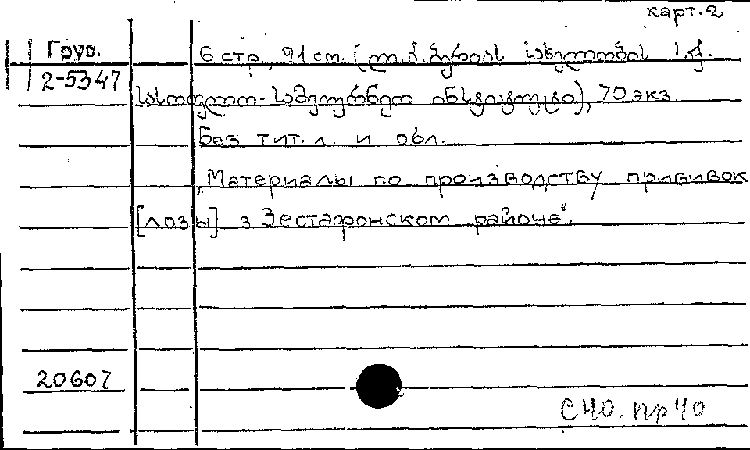 карт. 2
Груз.
2-5347
6 стр., 21 см. (ლ. პ. ბერიას სახელობის ს. ქ.
სასოფლო-სამეურნეო ინსტიტუტი), 70 экз.
Без тит. л. и обл.
„Материалы по производству прививок
[лозы] в Зестафонском районе".
20607
СНО. пр 40